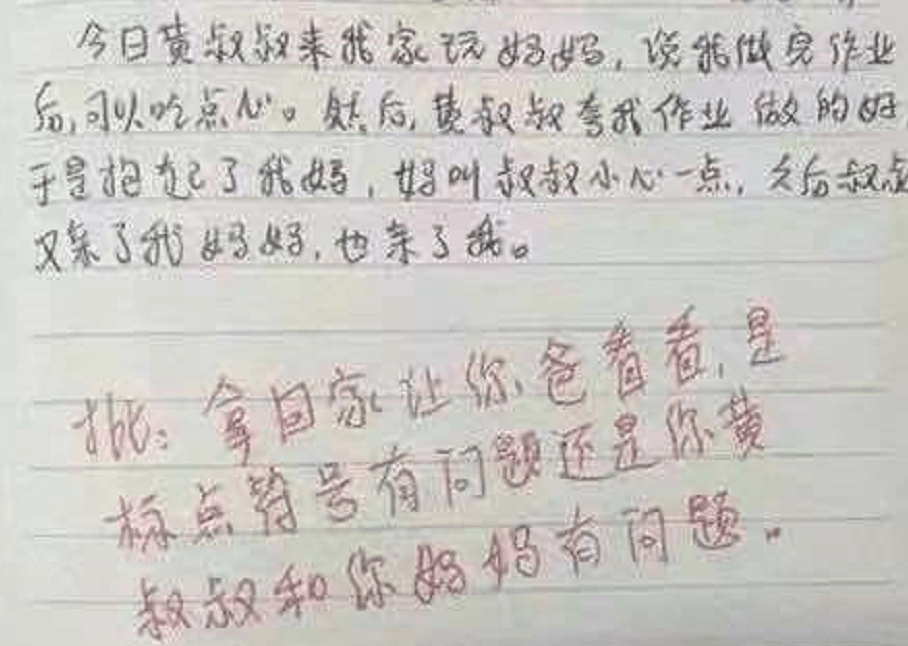 今日黄叔叔来我家玩妈妈，说我做完作业
后，可以吃点心。然后，黄叔叔夸我作业做的好
于是抱起了我妈，妈叫叔叔小心一点，之后叔叔
又亲了我妈妈，也亲了我。
批：拿回家让你爸看看，是
标点符号有问题还是你黄
叔叔和你妈妈有问题。